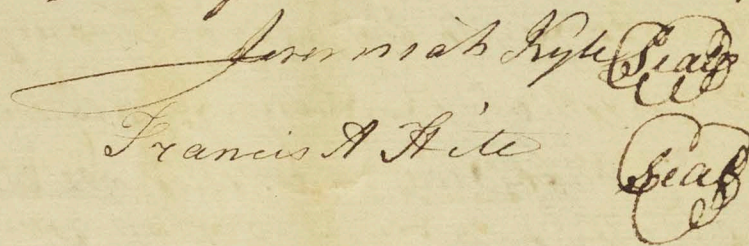 Jeremiah Kyle Seal
Francis A Hite
Seal